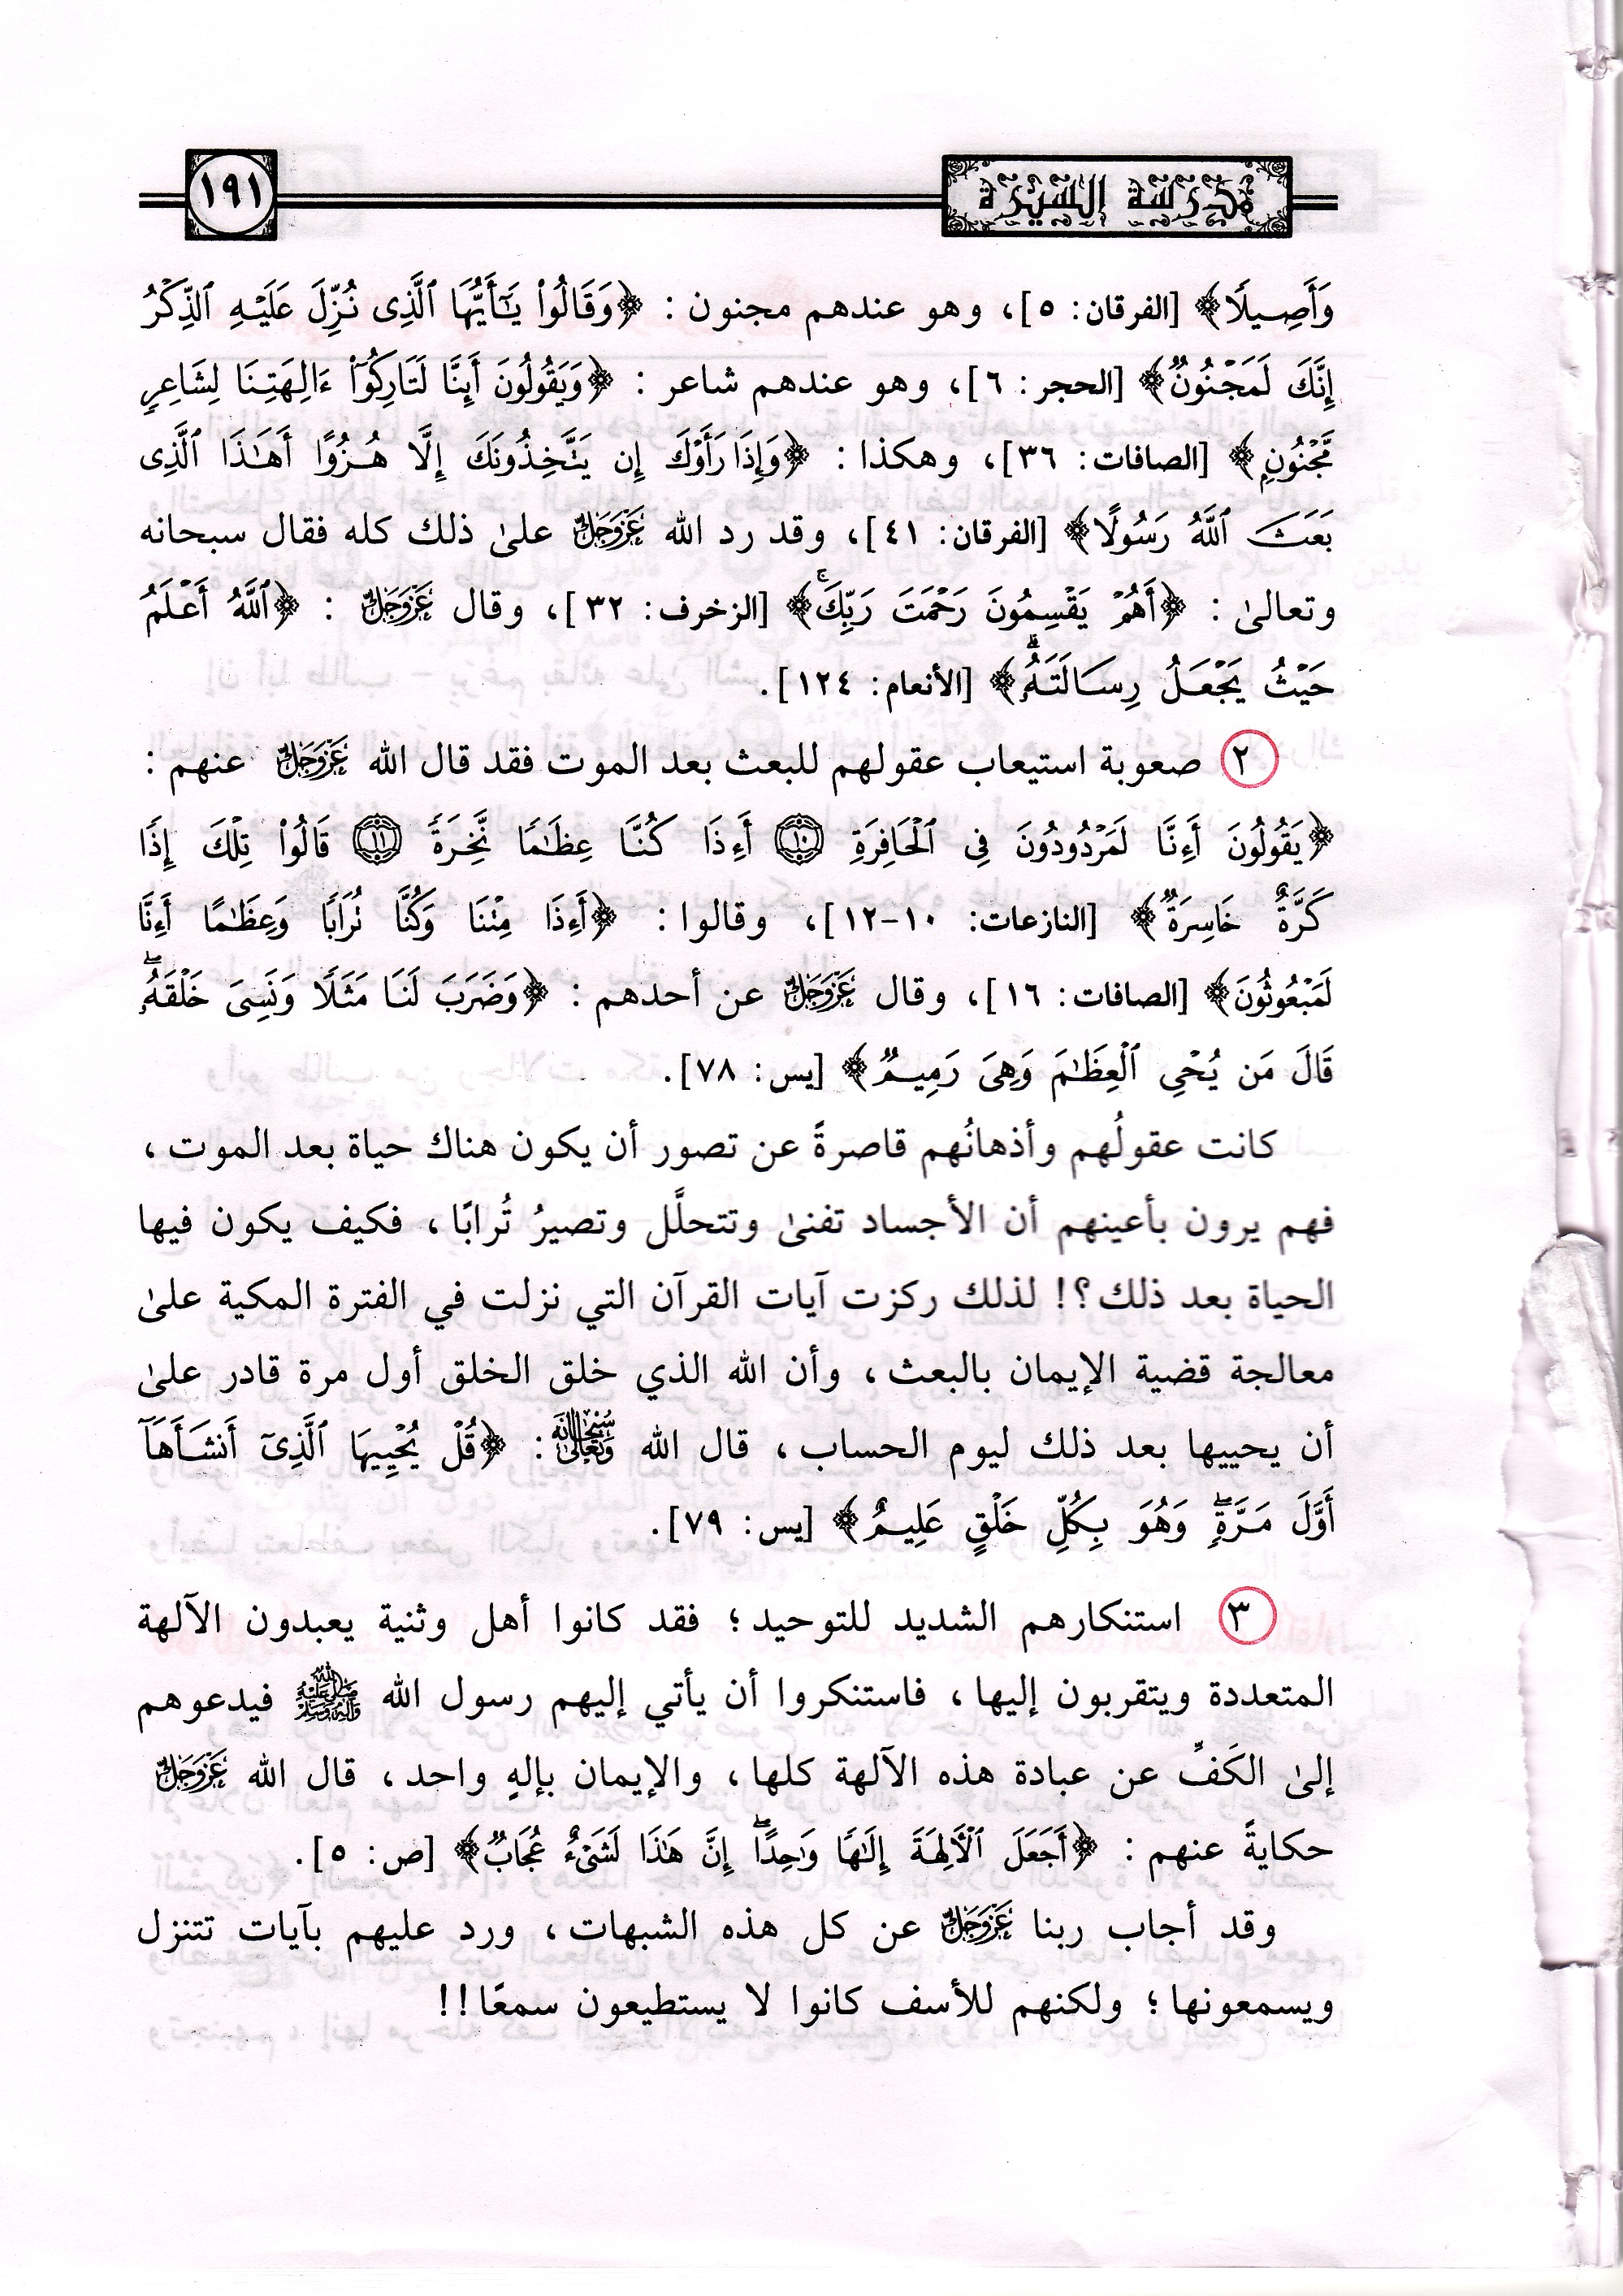 مدرسة السيرة
١٩١
وَأَصِيلًا﴾ [الفرقان: ٥]، وهو عندهم مجنون: ﴿وَقَالُوا۟ يَـٰٓأَيُّهَا ٱلَّذِى نُزِّلَ عَلَيْهِ ٱلذِّكْرُ
إِنَّكَ لَمَجْنُونٌ﴾ [الحجر: ٦]، وهو عندهم شاعر: ﴿وَيَقُولُونَ أَئِنَّا لَتَارِكُوٓا۟ ءَالِهَتِنَا لِشَاعِرٍ
مَّجْنُونٍۭ﴾ [الصافات: ٣٦]، وهكذا: ﴿وَإِذَا رَأَوْكَ إِن يَتَّخِذُونَكَ إِلَّا هُزُوًا أَهَـٰذَا ٱلَّذِى
بَعَثَ ٱللَّهُ رَسُولًا﴾ [الفرقان: ٤١]، وقد رد الله عَزَّوَجَلَّ علىٰ ذلك كله فقال سبحانه
وتعالىٰ: ﴿أَهُمْ يَقْسِمُونَ رَحْمَتَ رَبِّكَ ۚ﴾ [الزخرف: ٣٢]، وقال عَزَّوَجَلَّ: ﴿ٱللَّهُ أَعْلَمُ
حَيْثُ يَجْعَلُ رِسَالَتَهُۥ ۗ﴾ [الأنعام: ١٢٤].
٢ صعوبة استيعاب عقولهم للبعث بعد الموت فقد قال الله عَزَّوَجَلَّ عنهم:
﴿يَقُولُونَ أَءِنَّا لَمَرْدُودُونَ فِى ٱلْحَافِرَةِ ١٠ أَءِذَا كُنَّا عِظَـٰمًا نَّخِرَةً ١١ قَالُوا۟ تِلْكَ إِذًا
كَرَّةٌ خَاسِرَةٌ﴾ [النازعات: ١٠-١٢]، وقالوا: ﴿أَءِذَا مِتْنَا وَكُنَّا تُرَابًا وَعِظَـٰمًا أَءِنَّا
لَمَبْعُوثُونَ﴾ [الصافات: ١٦]، وقال عَزَّوَجَلَّ عن أحدهم: ﴿وَضَرَبَ لَنَا مَثَلًا وَنَسِىَ خَلْقَهُۥ ۖ
قَالَ مَن يُحْىِ ٱلْعِظَـٰمَ وَهِىَ رَمِيمٌ﴾ [يس: ٧٨].
كانت عقولُهم وأذهانُهم قاصرةً عن تصور أن يكون هناك حياة بعد الموت،
فهم يرون بأعينهم أن الأجساد تفنىٰ وتتحلَّل وتصيرُ تُرابًا، فكيف يكون فيها
الحياة بعد ذلك؟! لذلك ركزت آيات القرآن التي نزلت في الفترة المكية علىٰ
معالجة قضية الإيمان بالبعث، وأن الله الذي خلق الخلق أول مرة قادر علىٰ
أن يحييها بعد ذلك ليوم الحساب، قال الله سُبْحَانَهُ وَتَعَالَىٰ: ﴿قُلْ يُحْيِيهَا ٱلَّذِىٓ أَنشَأَهَآ
أَوَّلَ مَرَّةٍ ۖ وَهُوَ بِكُلِّ خَلْقٍ عَلِيمٌ﴾ [يس: ٧٩].
٣ استنكارهم الشديد للتوحيد؛ فقد كانوا أهل وثنية يعبدون الآلهة
المتعددة ويتقربون إليها، فاستنكروا أن يأتي إليهم رسول الله صَلَّى اللهُ عَلَيْهِ وَآلِهِ وَسَلَّمَ فيدعوهم
إلىٰ الكَفِّ عن عبادة هذه الآلهة كلها، والإيمان بإلهٍ واحد، قال الله عَزَّوَجَلَّ
حكايةً عنهم: ﴿أَجَعَلَ ٱلْـَٔالِهَةَ إِلَـٰهًا وَٰحِدًا ۖ إِنَّ هَـٰذَا لَشَىْءٌ عُجَابٌ﴾ [ص: ٥].
وقد أجاب ربنا عَزَّوَجَلَّ عن كل هذه الشبهات، ورد عليهم بآيات تتنزل
ويسمعونها؛ ولكنهم للأسف كانوا لا يستطيعون سمعًا!!